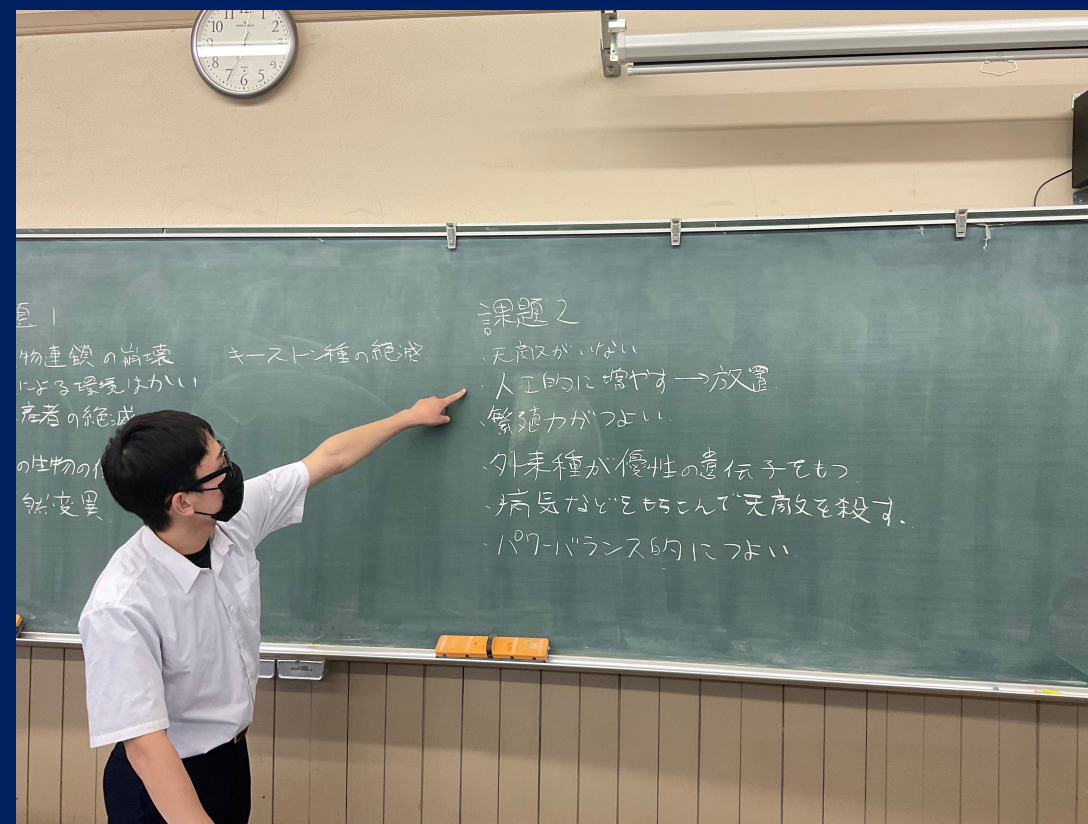 10 11 12 1 2
8 7 6 5
題1
物連鎖の崩壊
キーストン種の絶滅
による環境はかい
産者の絶滅
の生物の
然変異
課題2
・天敵がいない
・人工的に増やす→放置
・繁殖力がつよい.
・外来種が優性の遺伝子をもつ
・病気などをもちこんで天敵を殺す.
・パワーバランス的につよい